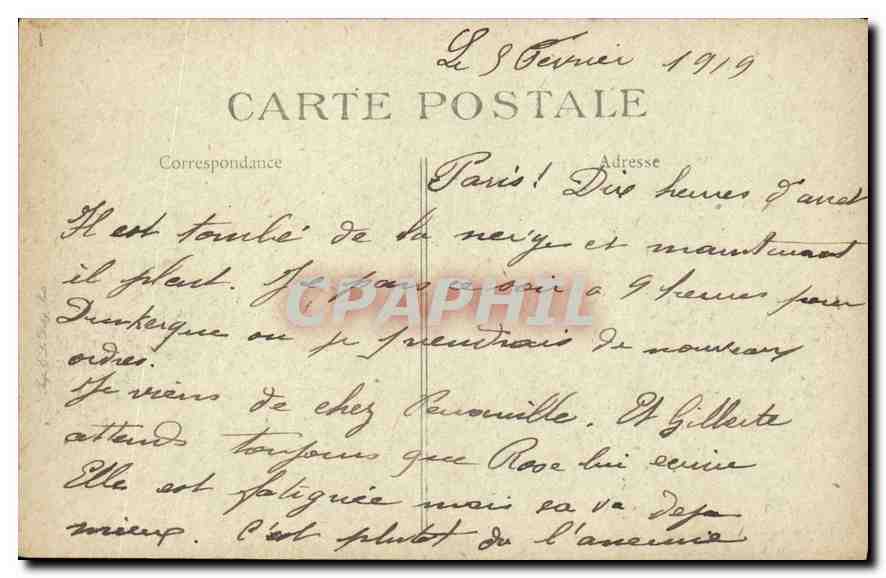 Le 5 Fevrier 1919
CARTE POSTALE
Correspondance
Adresse
Paris! Dix heures d'arret
Il est tombé de la neige et maintenant
il pleut. Je pars ce soir a 9 heures pour
CPAPHIL
Dunkerque ou je prendrais de nouveaux
ordres.
Je viens de chez. Et Gilberte
attends toujours que Rose lui ecrive
Elle est fatiguée mais ca va deja
mieux. C'est plutot de l'anemie